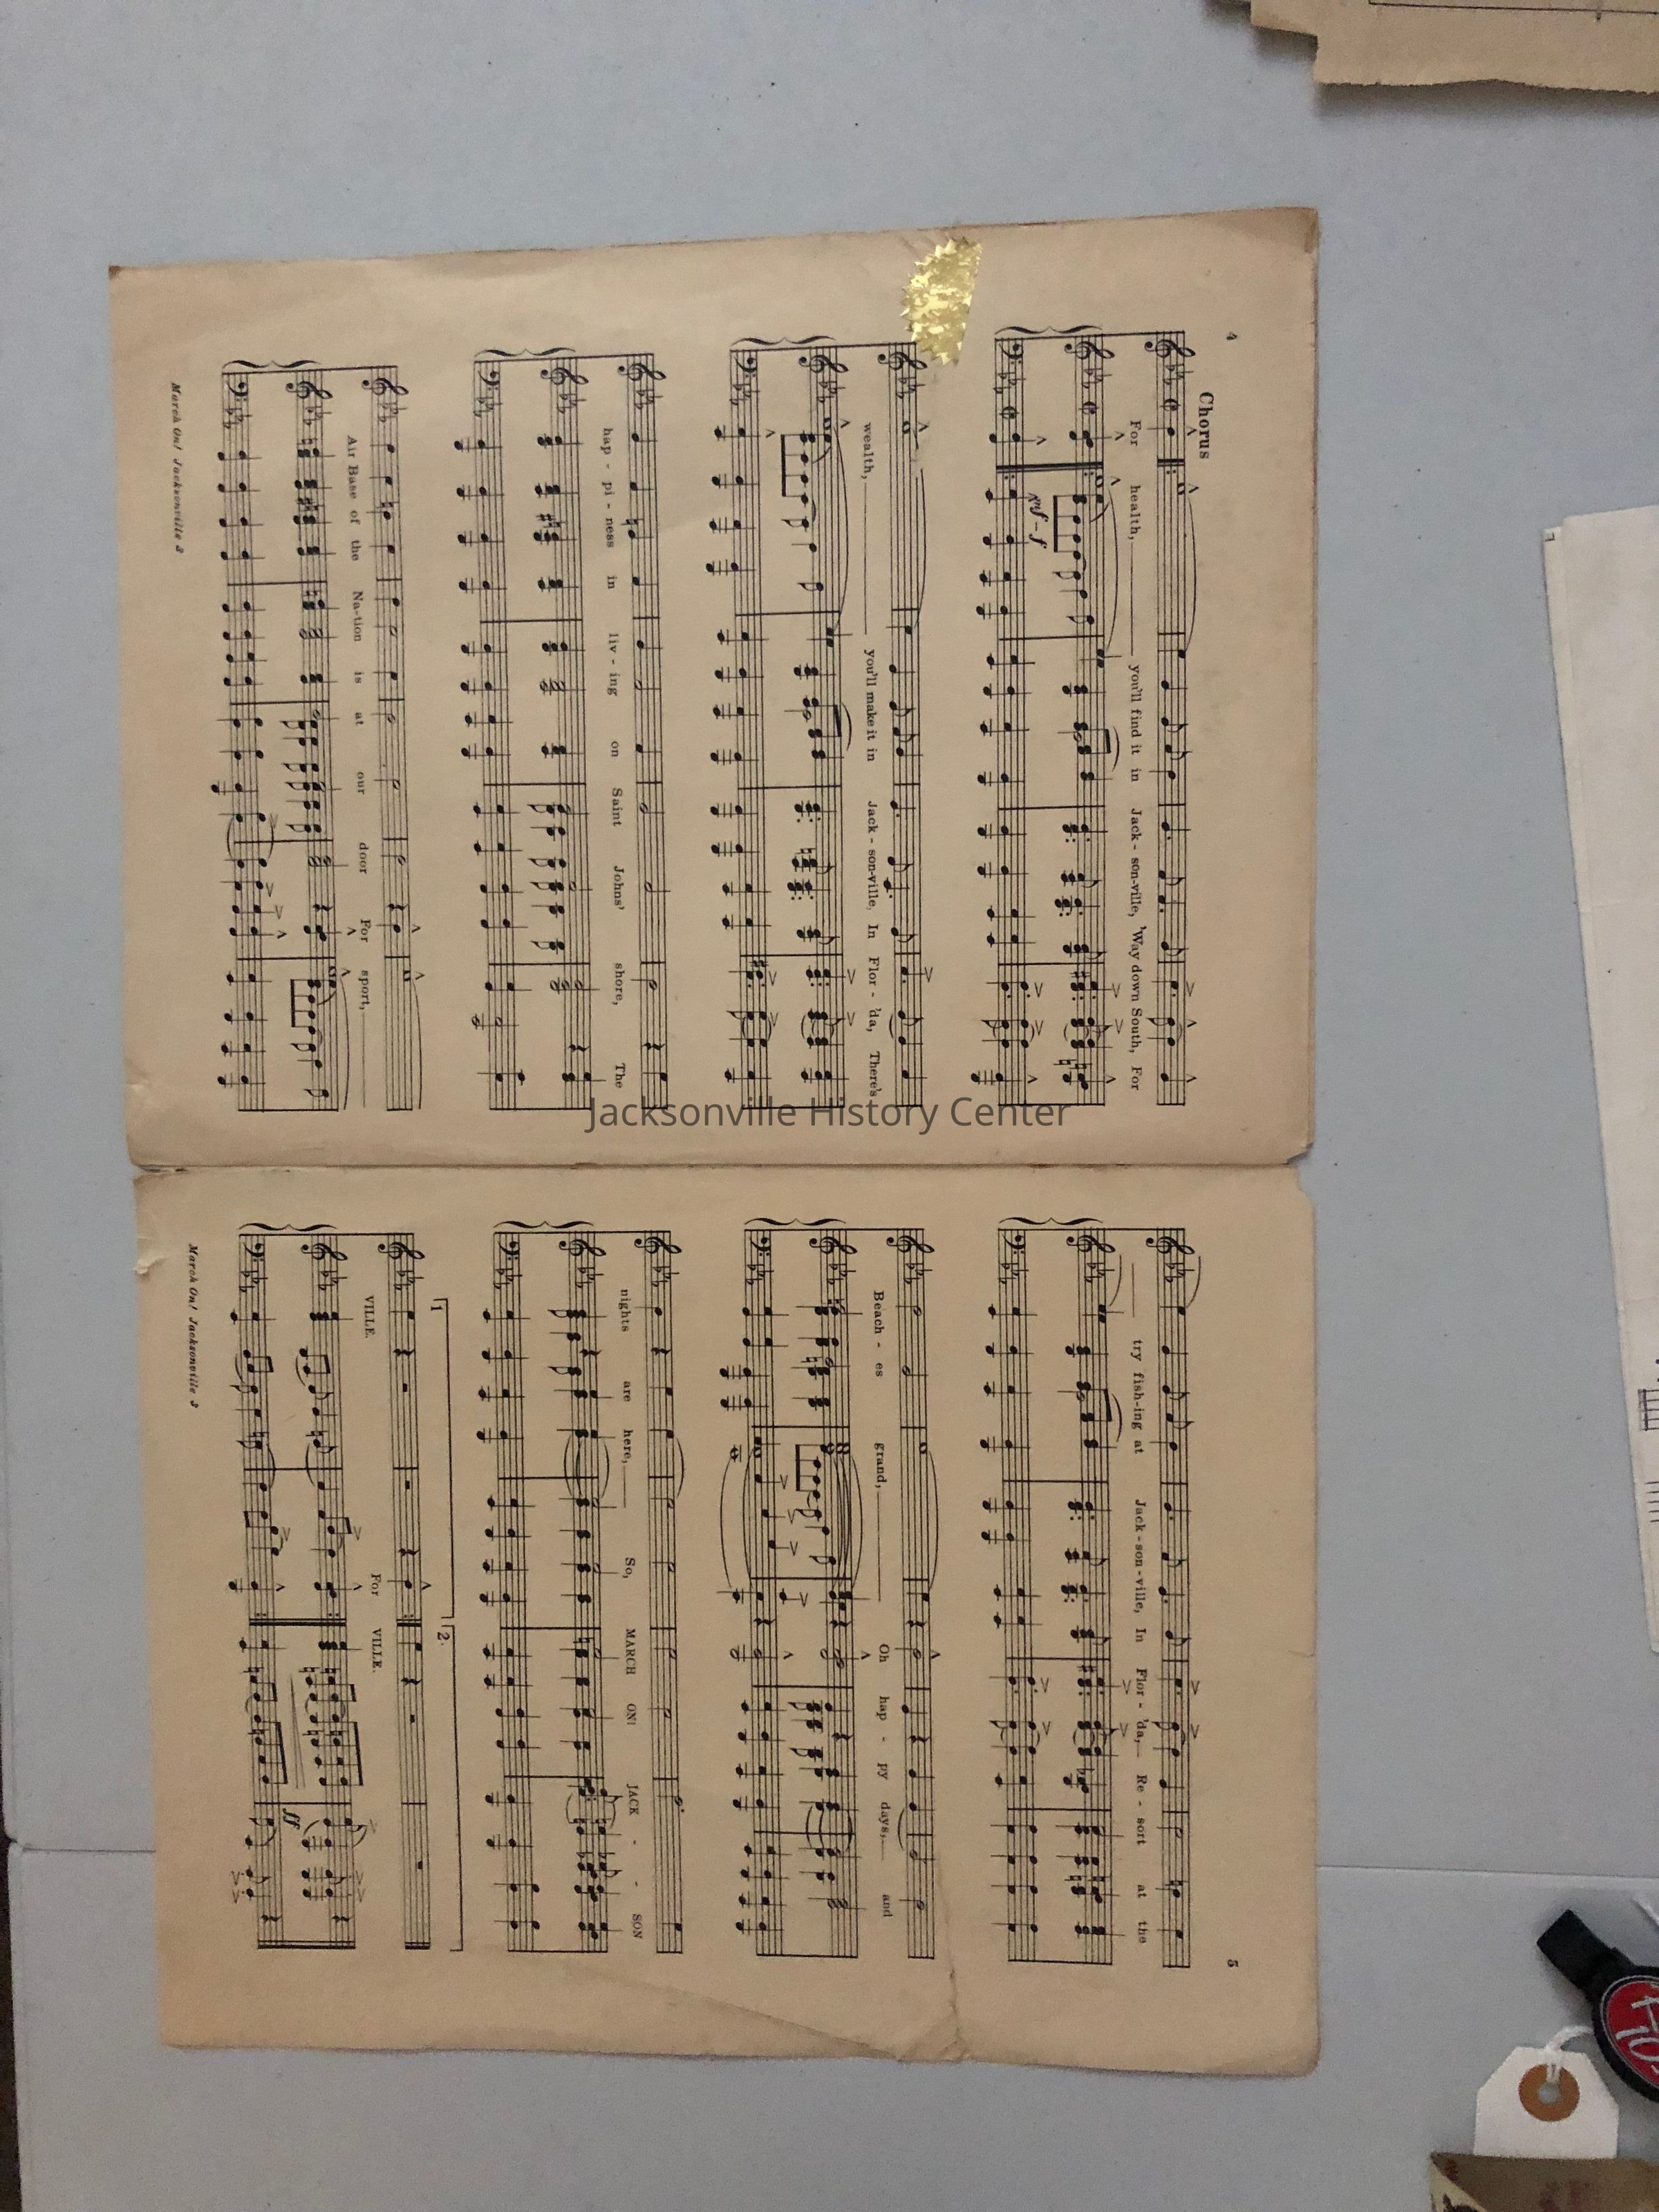 4
Chorus
For health, you'll find it in Jack - son-ville, 'Way down South, For
mf - f
wealth, you'll make it in Jack - son-ville, In Flor - 'da, There's
hap - pi - ness in liv - ing on Saint Johns' shore, The
Air Base of the Na-tion is at our door For sport,
March On! Jacksonville 3
5
try fish-ing at Jack-son-ville, In Flor - 'da, Re - sort at the
Beach - es grand, Oh hap - py days, and
nights are here, So, MARCH ON! JACK - - SON
1 2.
VILLE. For VILLE.
ff
March On! Jacksonville 3
Jacksonville History Center